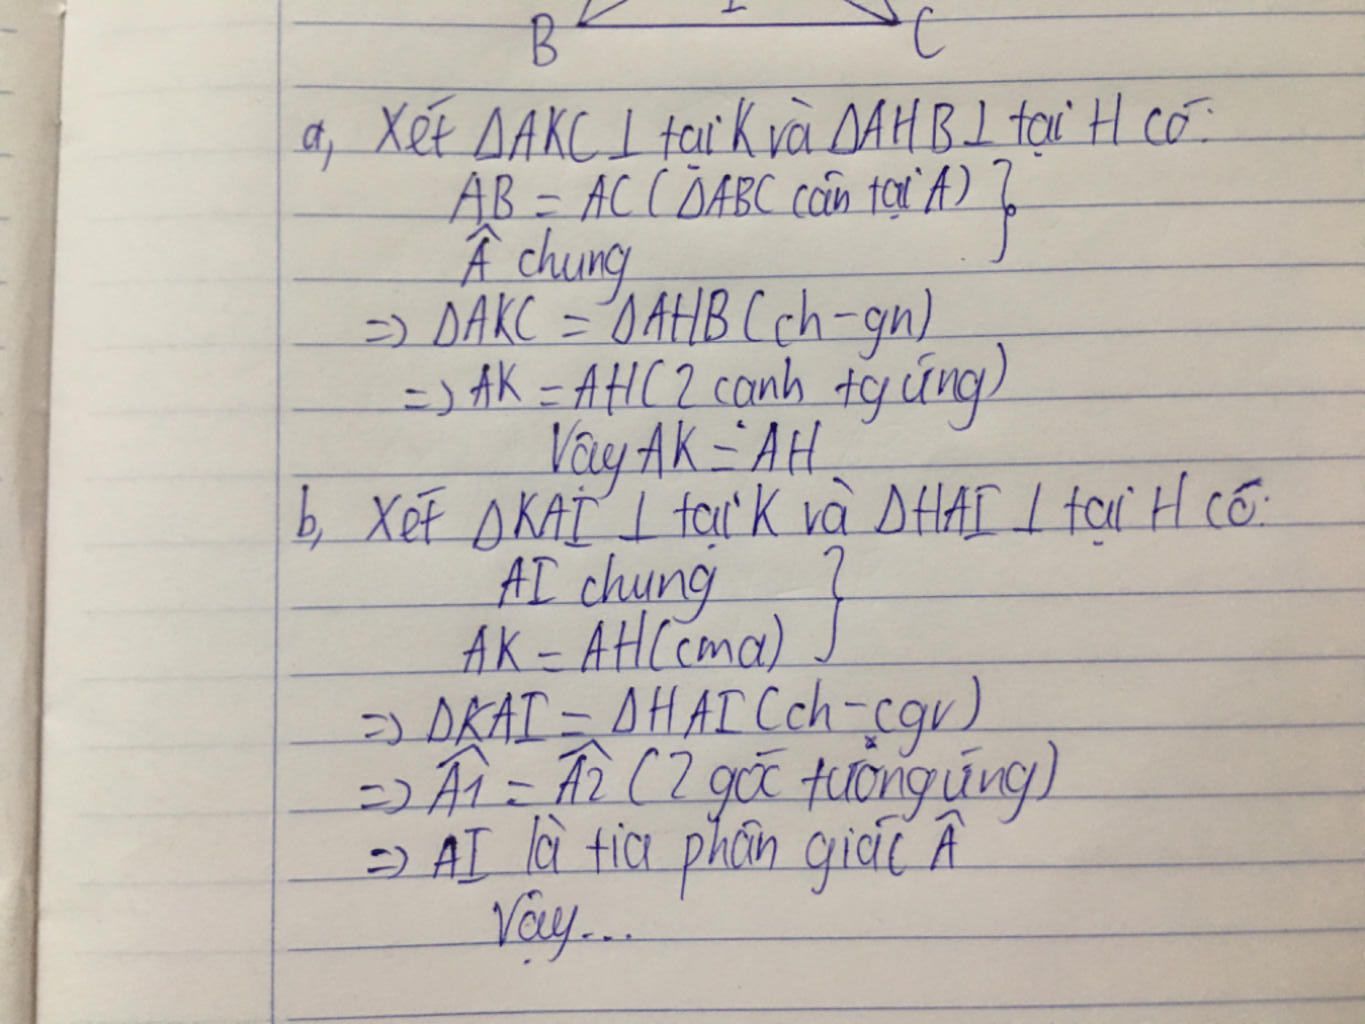 I
B C
a, Xét ΔAKC ⊥ tại K và ΔAHB ⊥ tại H có:
AB = AC (ΔABC cân tại A) }
Â chung
=> ΔAKC = ΔAHB (ch-gn)
=> AK = AH (2 cạnh tg ứng)
Vậy AK = AH
b, Xét ΔKAI ⊥ tại K và ΔHAI ⊥ tại H có:
AI chung }
AK = AH (cma)
=> ΔKAI = ΔHAI (ch-cgv)
=> Â1 = Â2 (2 góc tương ứng)
=> AI là tia phân giác Â
Vậy...